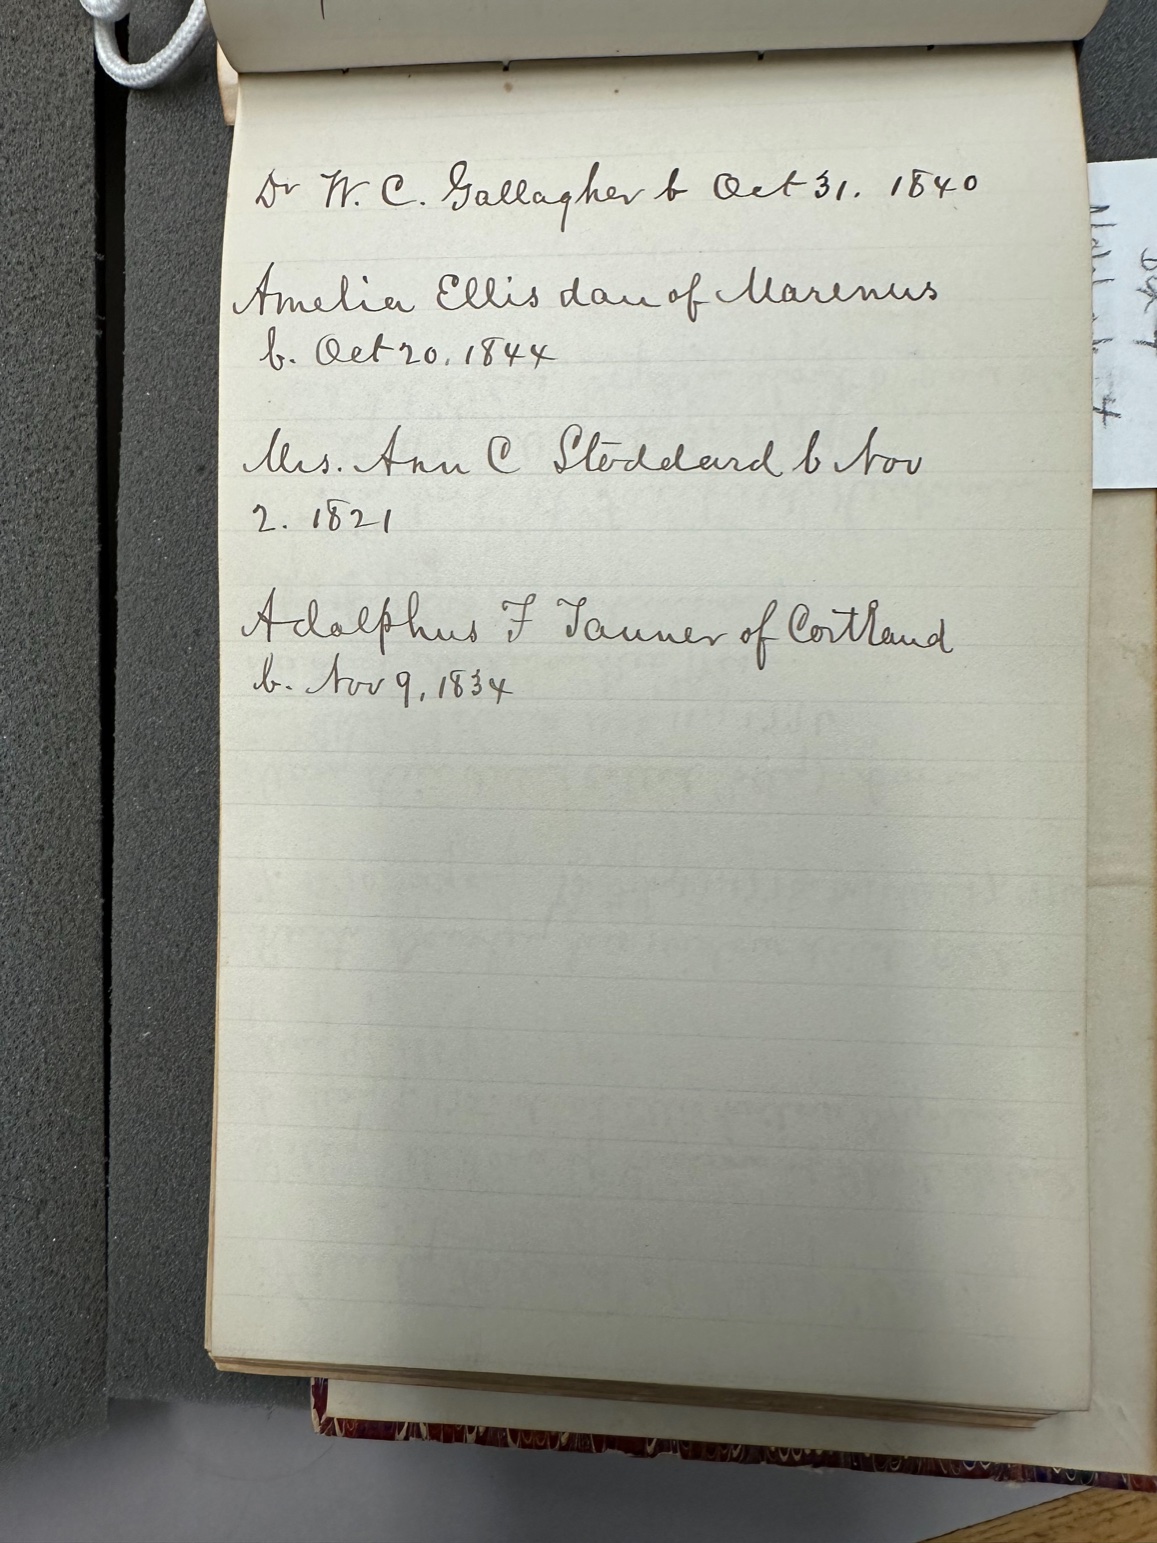 Dr W. C. Gallagher b Oct 31. 1840
Amelia Ellis dau of Marenus
b. Oct 20. 1844
Mrs. Ann C Stoddard b Nov
2. 1821
Adolphus F Tanner of Cortland
b. Nov 9, 1834